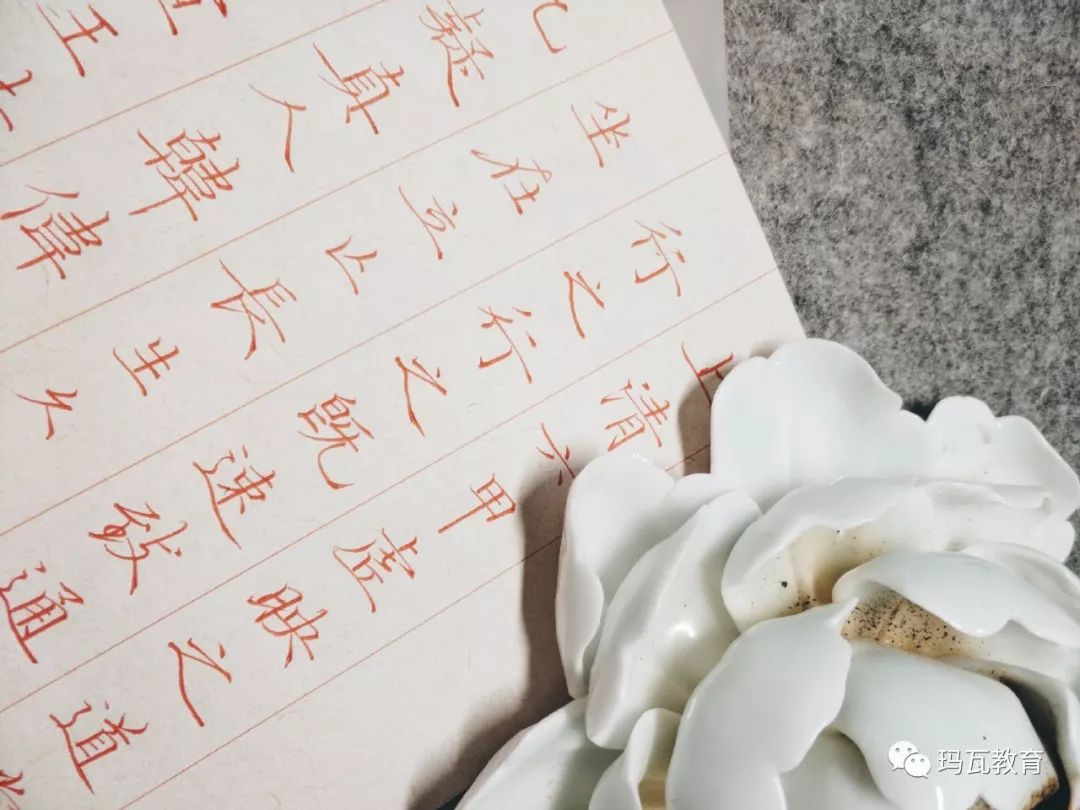 上清六甲虛映之道
行之行之既速致通
坐在立亡長生久
九疑真人韓偉
宣王
玛瓦教育